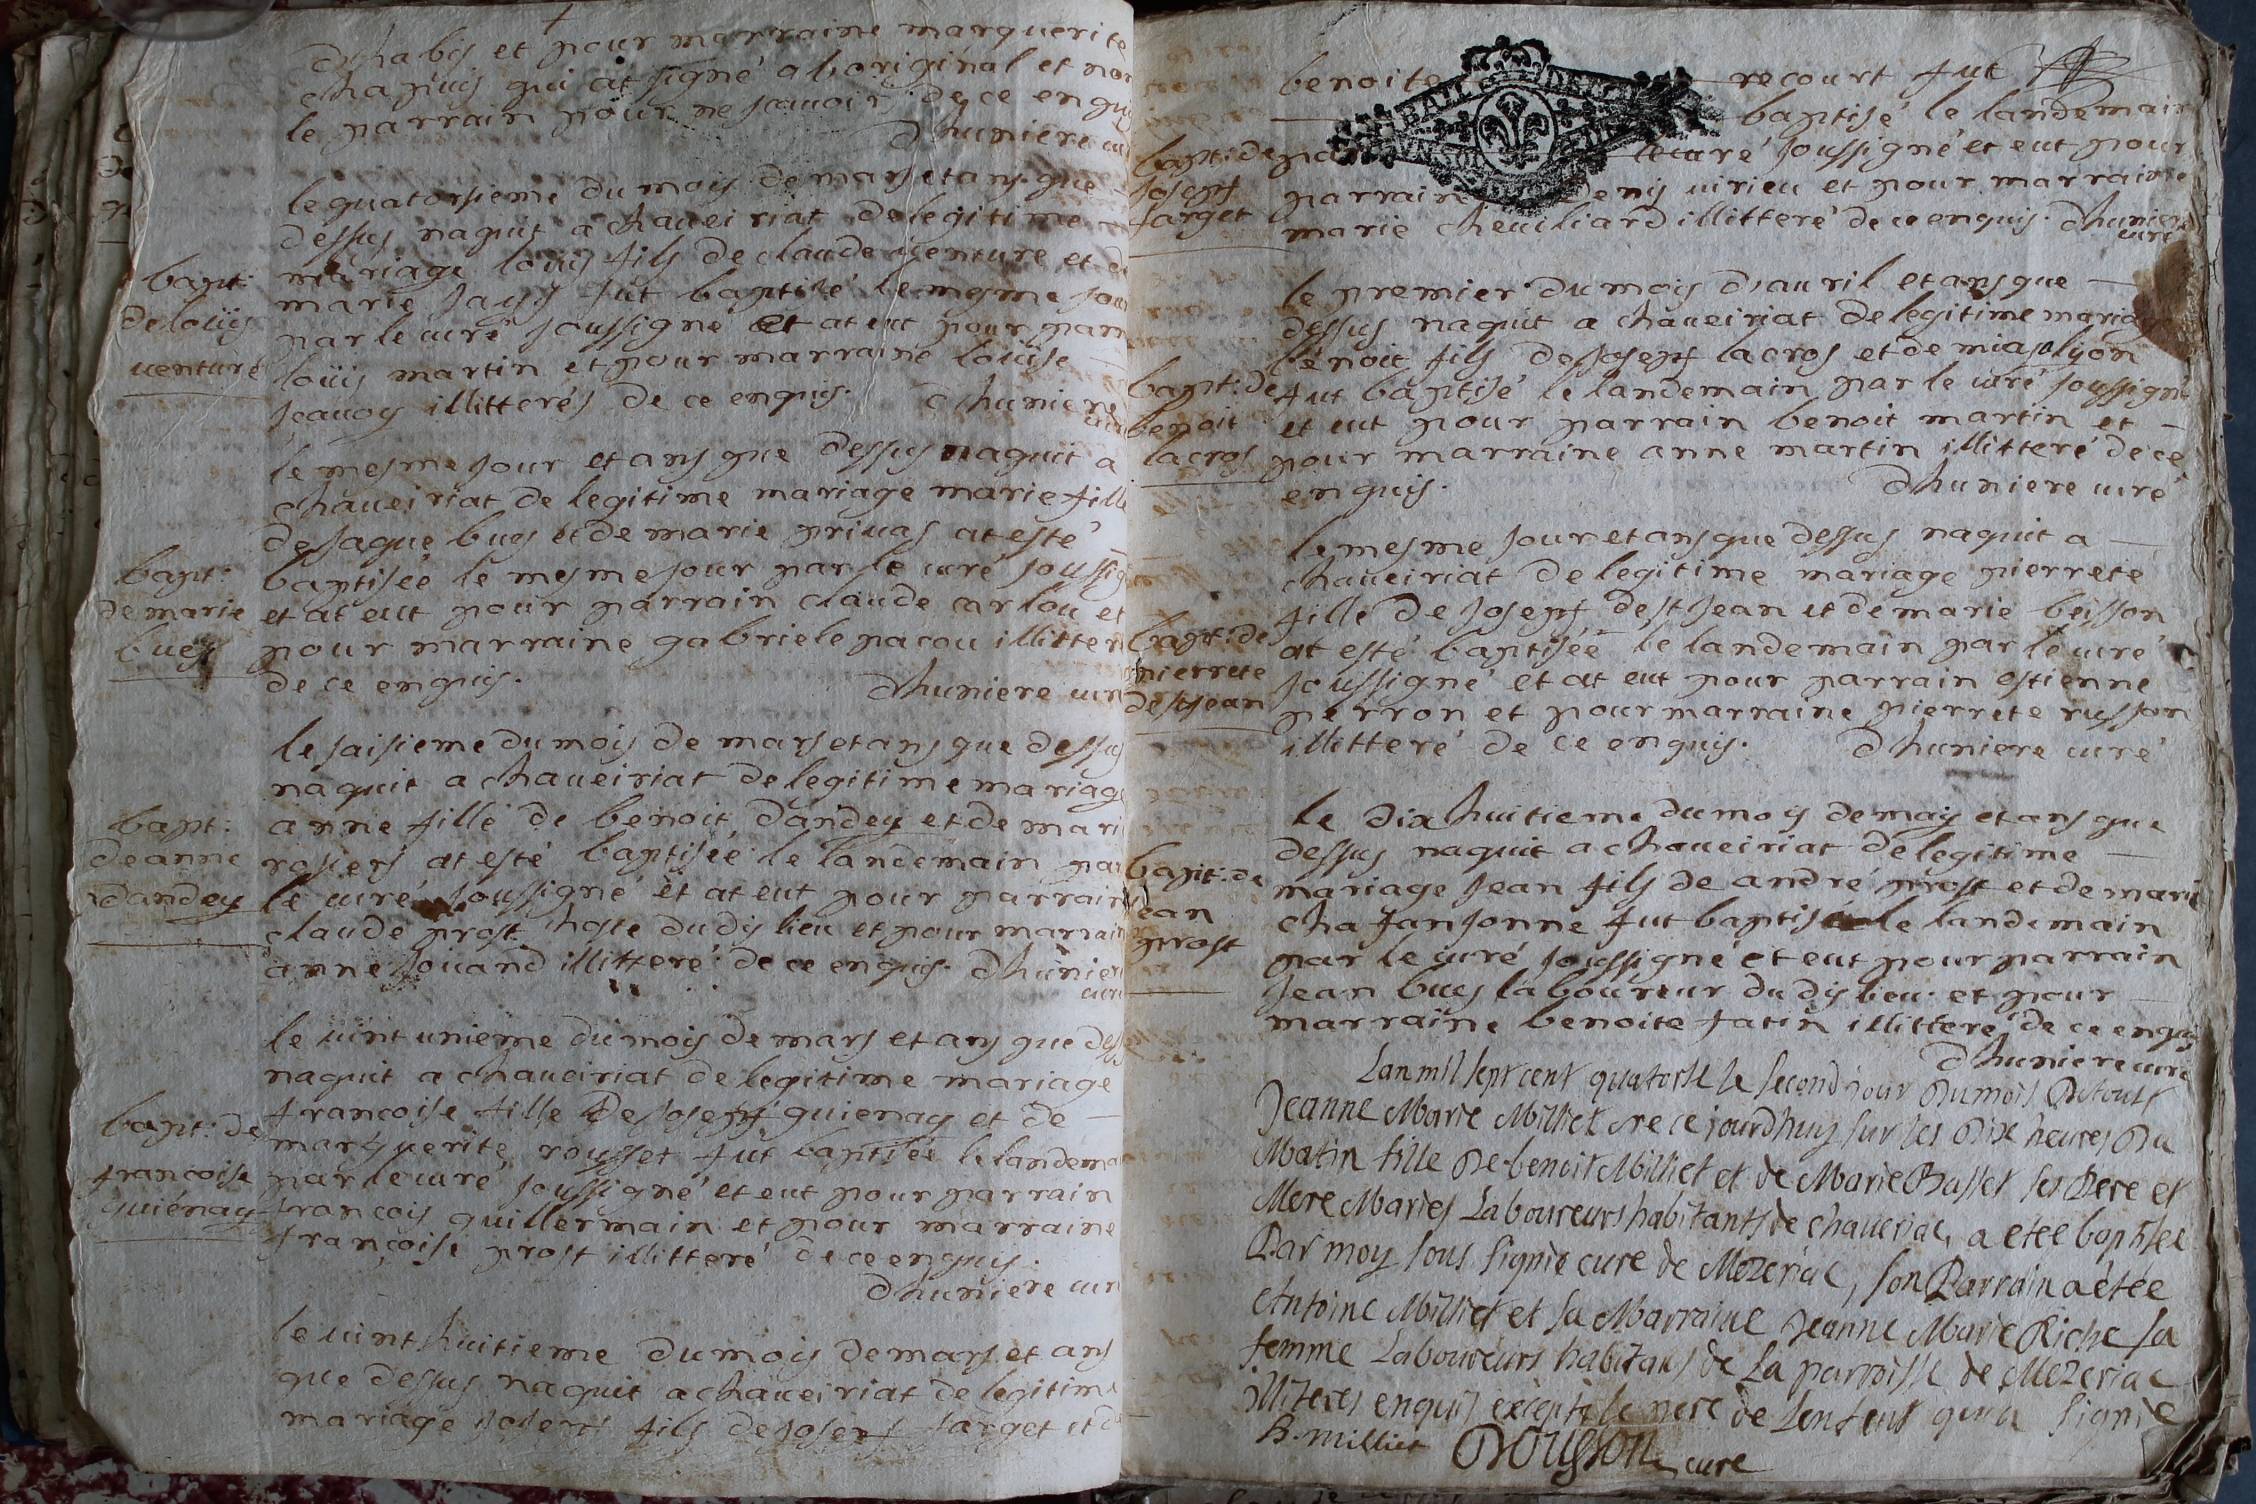 dchabis et pour marraine marguerite
chapuis qui at signé a loriginal et non
le parrain pour ne scauoir de ce enquis
dhuniere curé
le quatorsieme du mois de mars et ans que
dessus naquit a chaueiriat de legitime
mariage louis fils de claude uenture et de
marie fut baptisé le mesme jour
par le curé soussigné et at eut pour parrain
loüis martin et pour marraine loüise
illitterés de ce enquis. dhuniere
curé
bapt:
de loüis
uenture
le mesme jour et ans que dessus naquit a
chaueiriat de legitime mariage marie fille
de jaque bues et de marie priuas at esté
baptisée le mesme jour par le curé soussigné
et at eut pour parrain claude carlou et
pour marraine gabriele pacou illitteré
de ce enquis. dhuniere curé
bapt:
de marie
bues
le saisieme du mois de mars et ans que dessus
naquit a chaueiriat de legitime mariage
anne fille de benoit dandey et de marie
rosiers at esté baptisée le landemain par
le curé soussigné et at eut pour parrain
claude prost hoste dudis lieu et pour marraine
anne jouand illitteré de ce enquis. dhuniere
curé
bapt:
de anne
dandey
le uint unieme du mois de mars et ans que dess
naquit a chaueiriat de legitime mariage
francoise fille de joseph guienay et de
marguerite rousset fut baptisée le landemain
par le curé soussigné et eut pour parrain
francois guillermain et pour marraine
françoise prost illitteré de ce enquis.
dhuniere curé
bapt: de
francoise
guiénay
le uint huitieme du mois de mars et ans
que dessus naquit a chaueiriat de legitime
mariage joseph fils de joseph farget et de
benoite recourt fut
baptisé le landemain
par le curé soussigné et eut pour
parrain denis uirieu et pour marraine
marie cheuiliard illitteré de ce enquis. dhuniere
curé
bapt: de
joseph
farget
le premier du mois d'auril et ans que
dessus naquit a chaueiriat de legitime mariage
bénoit fils de joseph lacros et de lyon
fut baptisé le landemain par le curé soussigné
et eut pour parrain benoit martin et
pour marraine anne martin illitteré de ce
enquis. dhuniere curé
bapt: de
benoit
lacros
le mesme jour et ans que dessus naquit a
chaueiriat de legitime mariage pierrete
fille de joseph destjean et de marie beisson
at esté baptisée le landemain par le curé
soussigné et at eut pour parrain estienne
perron et pour marraine pierrete russon
illitteré de ce enquis. dhuniere curé
bapt: de
pierrete
destjean
le dix huitieme du mois de may et ans que
dessus naquit a chaueiriat de legitime
mariage jean fils de andré prost et de marie
chafanjonne fut baptisé le landemain
par le curé soussigné et eut pour parrain
jean bues laboureur dudis lieu et pour
marraine benoite fatin illitteré de ce enquis
dhuniere curé
bapt: de
jean
prost
Lan mil sept cent quatorse le second jour du mois
Jeanne Marie Milliet nee ce jourdhuy sur les dix heures du
Matin fille de benoit Milliet et de Marie Basset ses Pere et
Mere Maries Laboureurs habitants de chaueriac, a etee baptisee
Par moy sous signé cure de Mezeriac, son Parrain a étée
Antoine Milliet et sa Marraine Jeanne Marie Riche sa
femme Laboureurs habitans de La parroisse de Mezeriac
illiteres enquis excepté le pere de Lenfent qui a signé
B. milliet Dousson cure